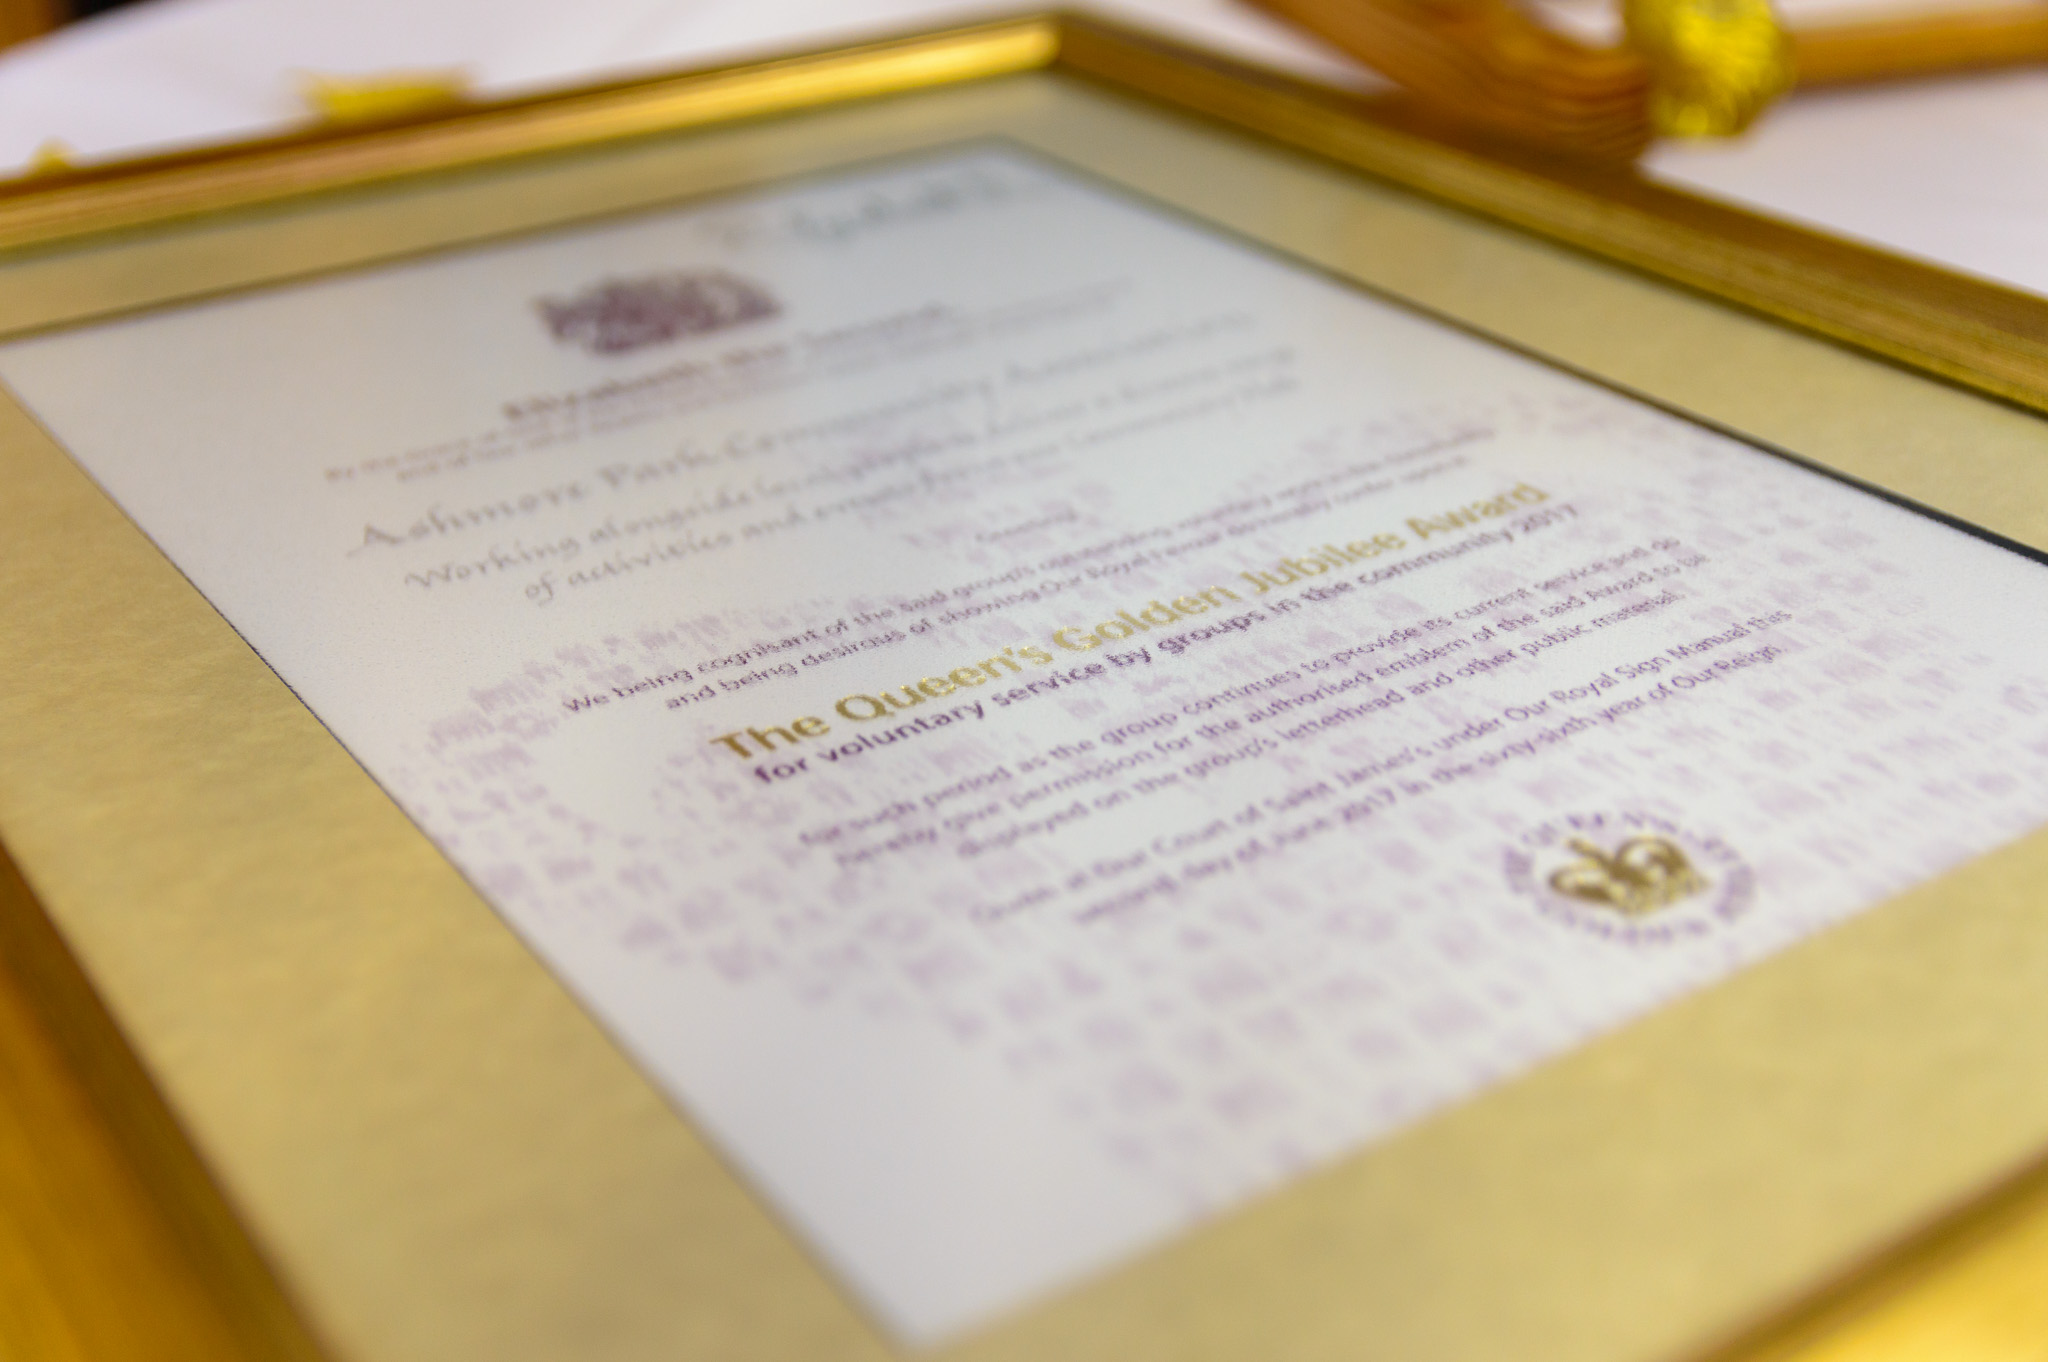 Elizabeth the Second
Ashmore Park Community Association
Working alongside local people to deliver a diverse range
of activities and events from our Community Hub
Greeting
We being cognisant of the said group's outstanding voluntary work in the community
and being desirous of showing Our Royal Favour do hereby confer upon it
The Queen's Golden Jubilee Award
for voluntary service by groups in the community 2017
for such period as the group continues to provide its current service and do
hereby give permission for the authorised emblem of the said Award to be
displayed on the group's letterhead and other public material.
Given at Our Court of Saint James's under Our Royal Sign Manual this
second day of June 2017 in the sixty-sixth year of Our Reign.